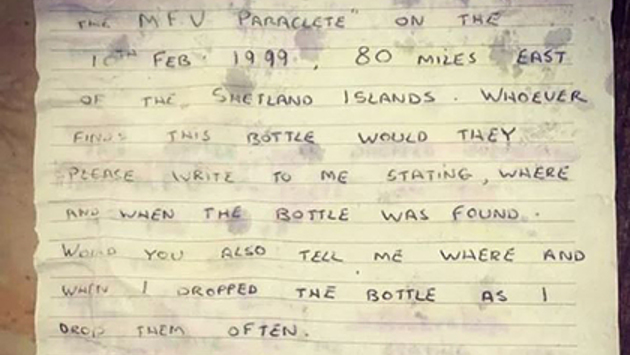 THE MFV "PARACLETE" ON THE
10TH FEB. 1999, 80 MILES EAST
OF THE SHETLAND ISLANDS. WHOEVER
FINDS THIS BOTTLE WOULD THEY
PLEASE WRITE TO ME STATING, WHERE
AND WHEN THE BOTTLE WAS FOUND.
WOULD YOU ALSO TELL ME WHERE AND
WHEN I DROPPED THE BOTTLE AS I
DROP THEM OFTEN.